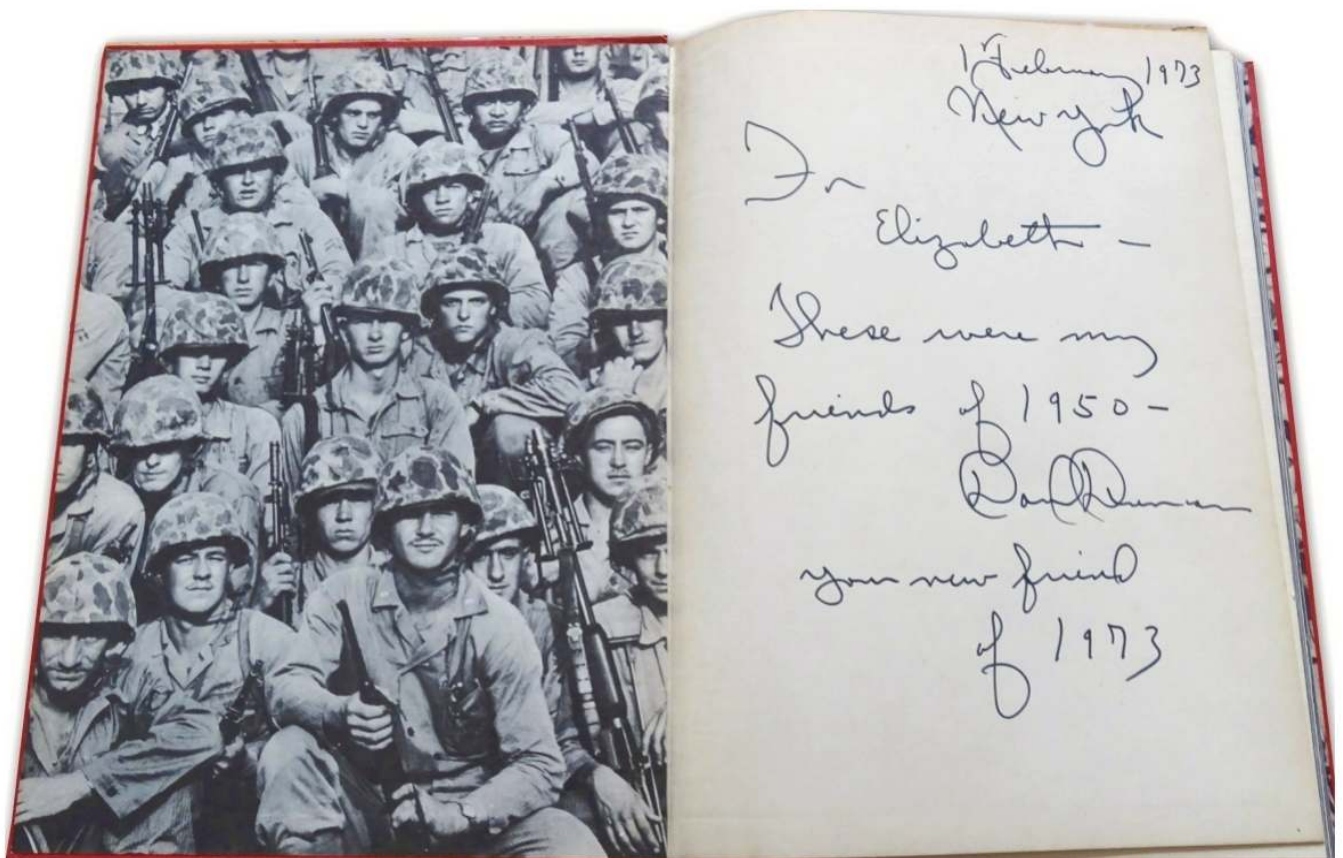 1 February 1973
New York
For
Elizabeth –
These were my
friends of 1950 –
David Duncan
your new friend
of 1973